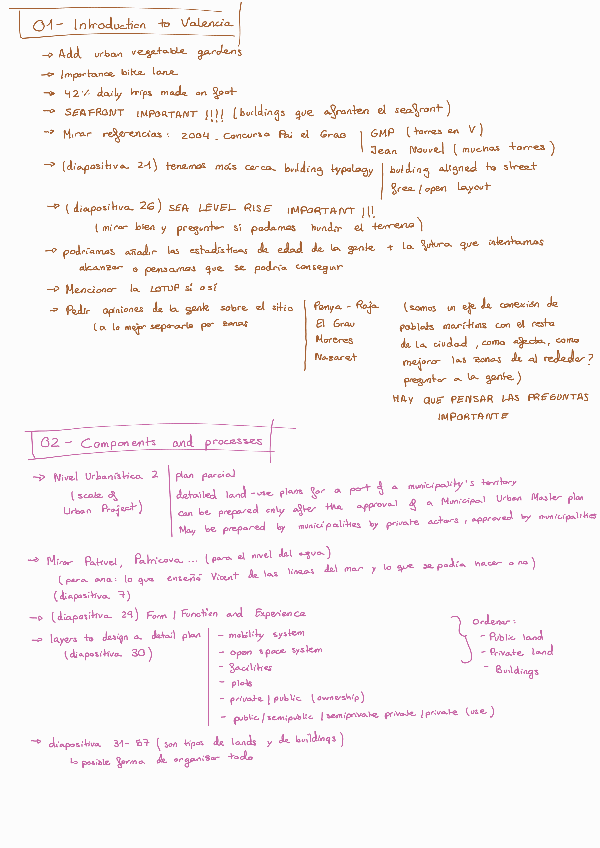 01- Introduction to Valencia
→ Add urban vegetable gardens
→ Importance bike lane
→ 42% daily trips made on foot
→ SEAFRONT IMPORTANT !!!! (buildings que afronten el seafront)
→ Mirar referencias: 2004. Concurso Pai el Grao | GMP (torres en V)
Jean Nouvel (muchas torres)
→ (diapositiva 21) tenemos más cerca building typology | building aligned to street
free/open layout
→ (diapositiva 26) SEA LEVEL RISE IMPORTANT !!!
(mirar bien y preguntar si podemos hundir el terreno)
→ podríamos añadir las estadísticas de edad de la gente + la futura que intentamos
alcanzar o pensamos que se podría conseguir
→ Mencionar la LOTUP si o sí
→ Pedir opiniones de la gente sobre el sitio
(a lo mejor separarlo por zonas
Penya-Roja
El Grau
Moreres
Nazaret
(somos un eje de conexión de
poblats marítims con el resto
de la ciudad, como afecta, como
mejorar las zonas de al rededor?
preguntar a la gente)
HAY QUE PENSAR LAS PREGUNTAS
IMPORTANTE
02- Components and processes
→ Nivel Urbanística 2
(scale of
Urban Project)
plan parcial
detailed land-use plans for a part of a municipality's territory
can be prepared only after the approval of a Municipal Urban Master plan
May be prepared by municipalities by private actors, approved by municipalities
→ Mirar Pativel, Patricova... (para el nivel del agua)
(para ana: lo que enseñó Vicent de las líneas del mar y lo que se podía hacer o no)
(diapositiva 7)
→ (diapositiva 29) Form / Function and Experience
→ layers to design a detail plan
(diapositiva 30)
- mobility system
- open space system
- facilities
- plots
- private/public (ownership)
- public/semipublic/semiprivate private/private (use)
Ordenar:
- Public land
- Private land
- Buildings
→ diapositiva 31-57 (son tipos de lands y de buildings)
↳ posible forma de organizar todo